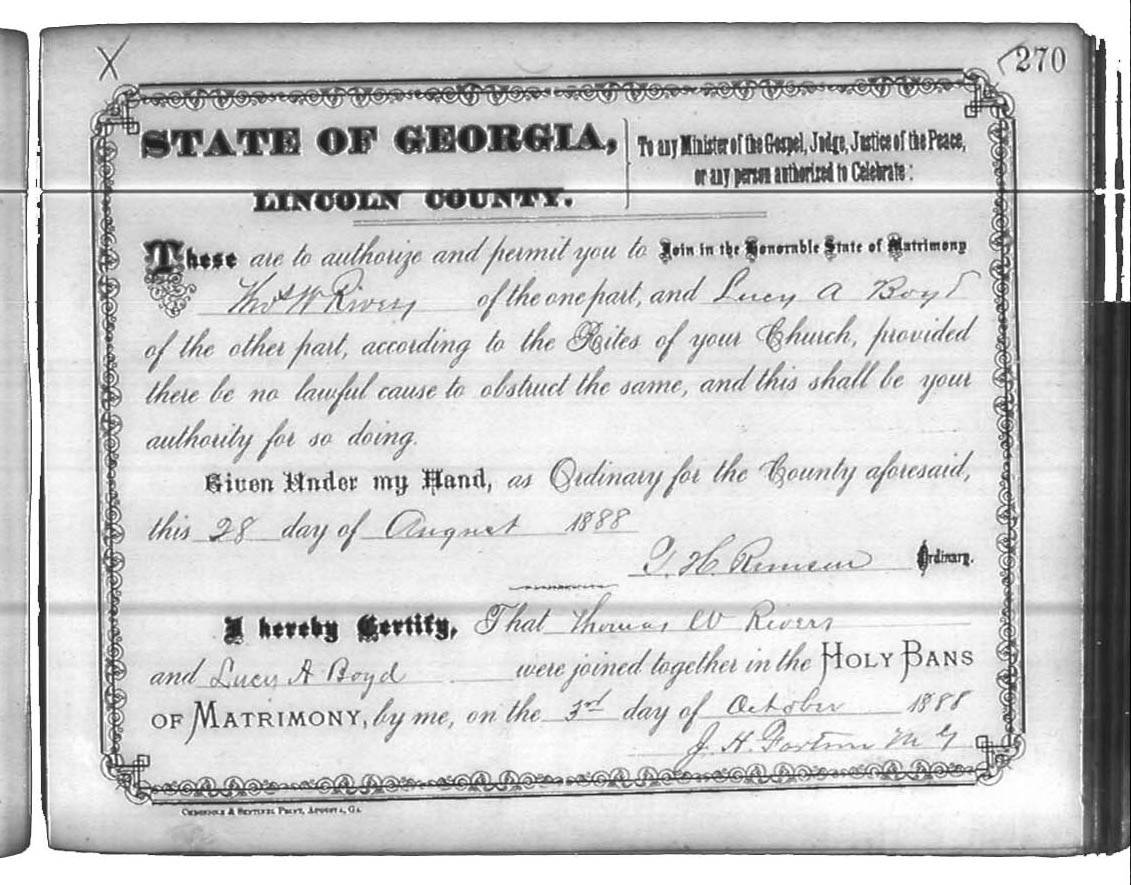 X
270
STATE OF GEORGIA,
LINCOLN COUNTY.
To any Minister of the Gospel, Judge, Justice of the Peace,
or any person authorized to Celebrate:
These are to authorize and permit you to Join in the Honorable State of Matrimony
Thos W Rivers of the one part, and Lucy A Boyd
of the other part, according to the Rites of your Church, provided
there be no lawful cause to obstruct the same, and this shall be your
authority for so doing.
Given Under my Hand, as Ordinary for the County aforesaid,
this 28 day of August 1888
T. H. Remsen Ordinary.
I hereby Certify, That Thomas W Rivers
and Lucy A Boyd were joined together in the HOLY BANS
OF MATRIMONY, by me, on the 3rd day of October 1888
J. H. Fortson M G
CHRONICLE & SENTINEL PRINT, AUGUSTA, GA.